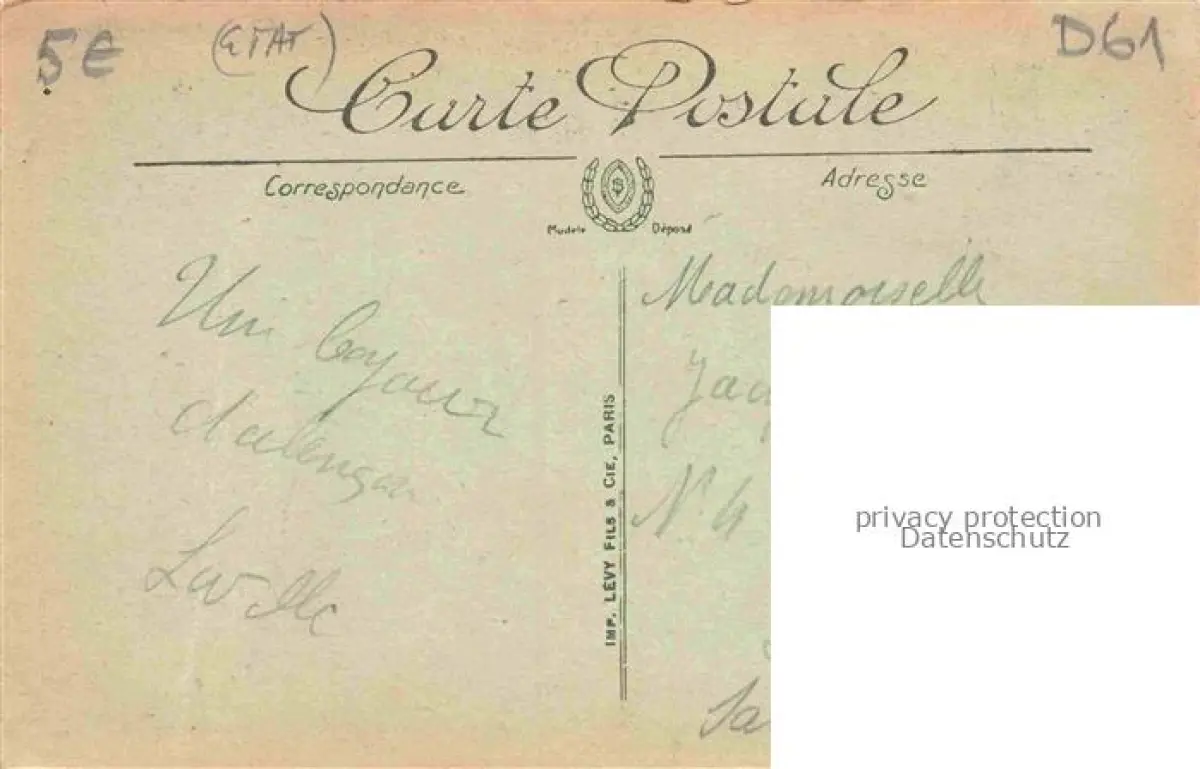 5€ (ETAT) D61
Carte Postale
Correspondance
Adresse
Modèle Déposé
Un bonjour
d'alençon
Mademoiselle
N° 4
Sa
IMP. LÉVY FILS & CIE, PARIS
privacy protection
Datenschutz